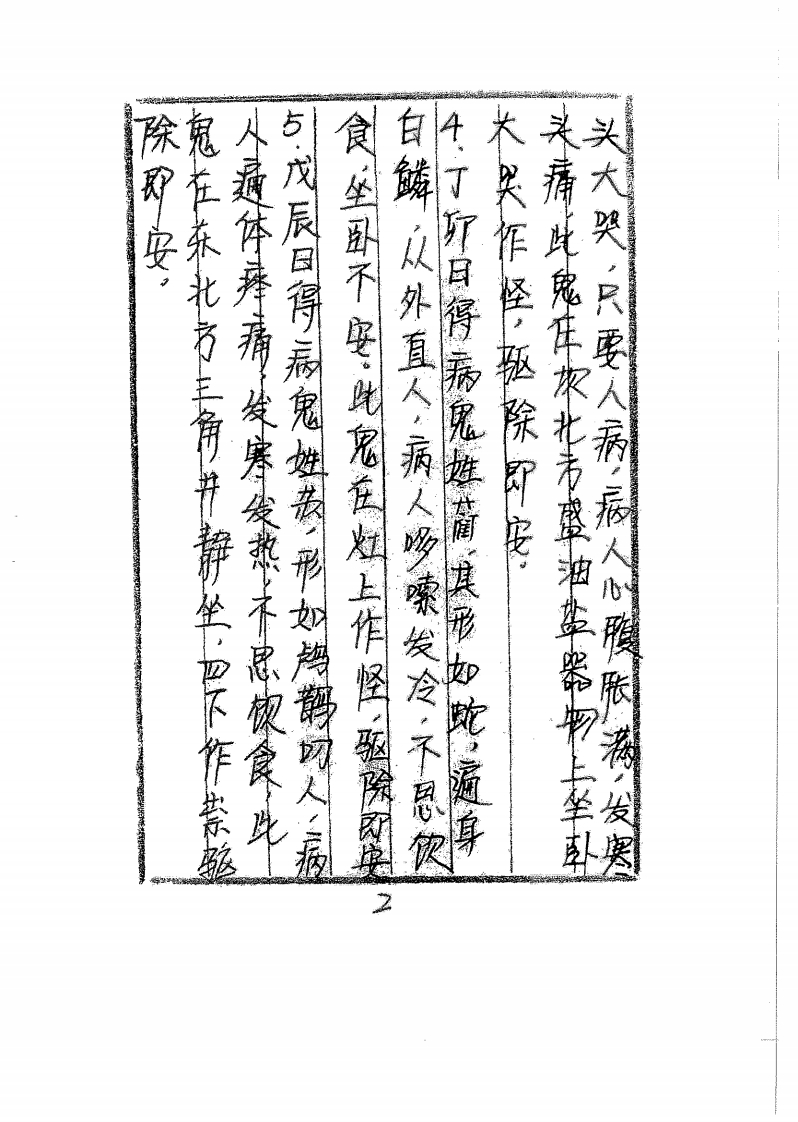 头大哭，只要人病，病人心腹胀满，发寒
头痛，此鬼在灰北方盛油盐器物上坐卧
大哭作怪，驱除即安。
4、丁卯日得病鬼姓蔺，其形如蛇，遍身
白鳞，从外直人，病人哆嗦发冷，不思饮
食，坐卧不安。此鬼在灶上作怪，驱除即安
5、戊辰日得病鬼姓苏，形如鹊叼人，病
人遍体疼痛，发寒发热，不思饮食，此
鬼在东北方三角井静坐，四下作祟驱
除即安。
2